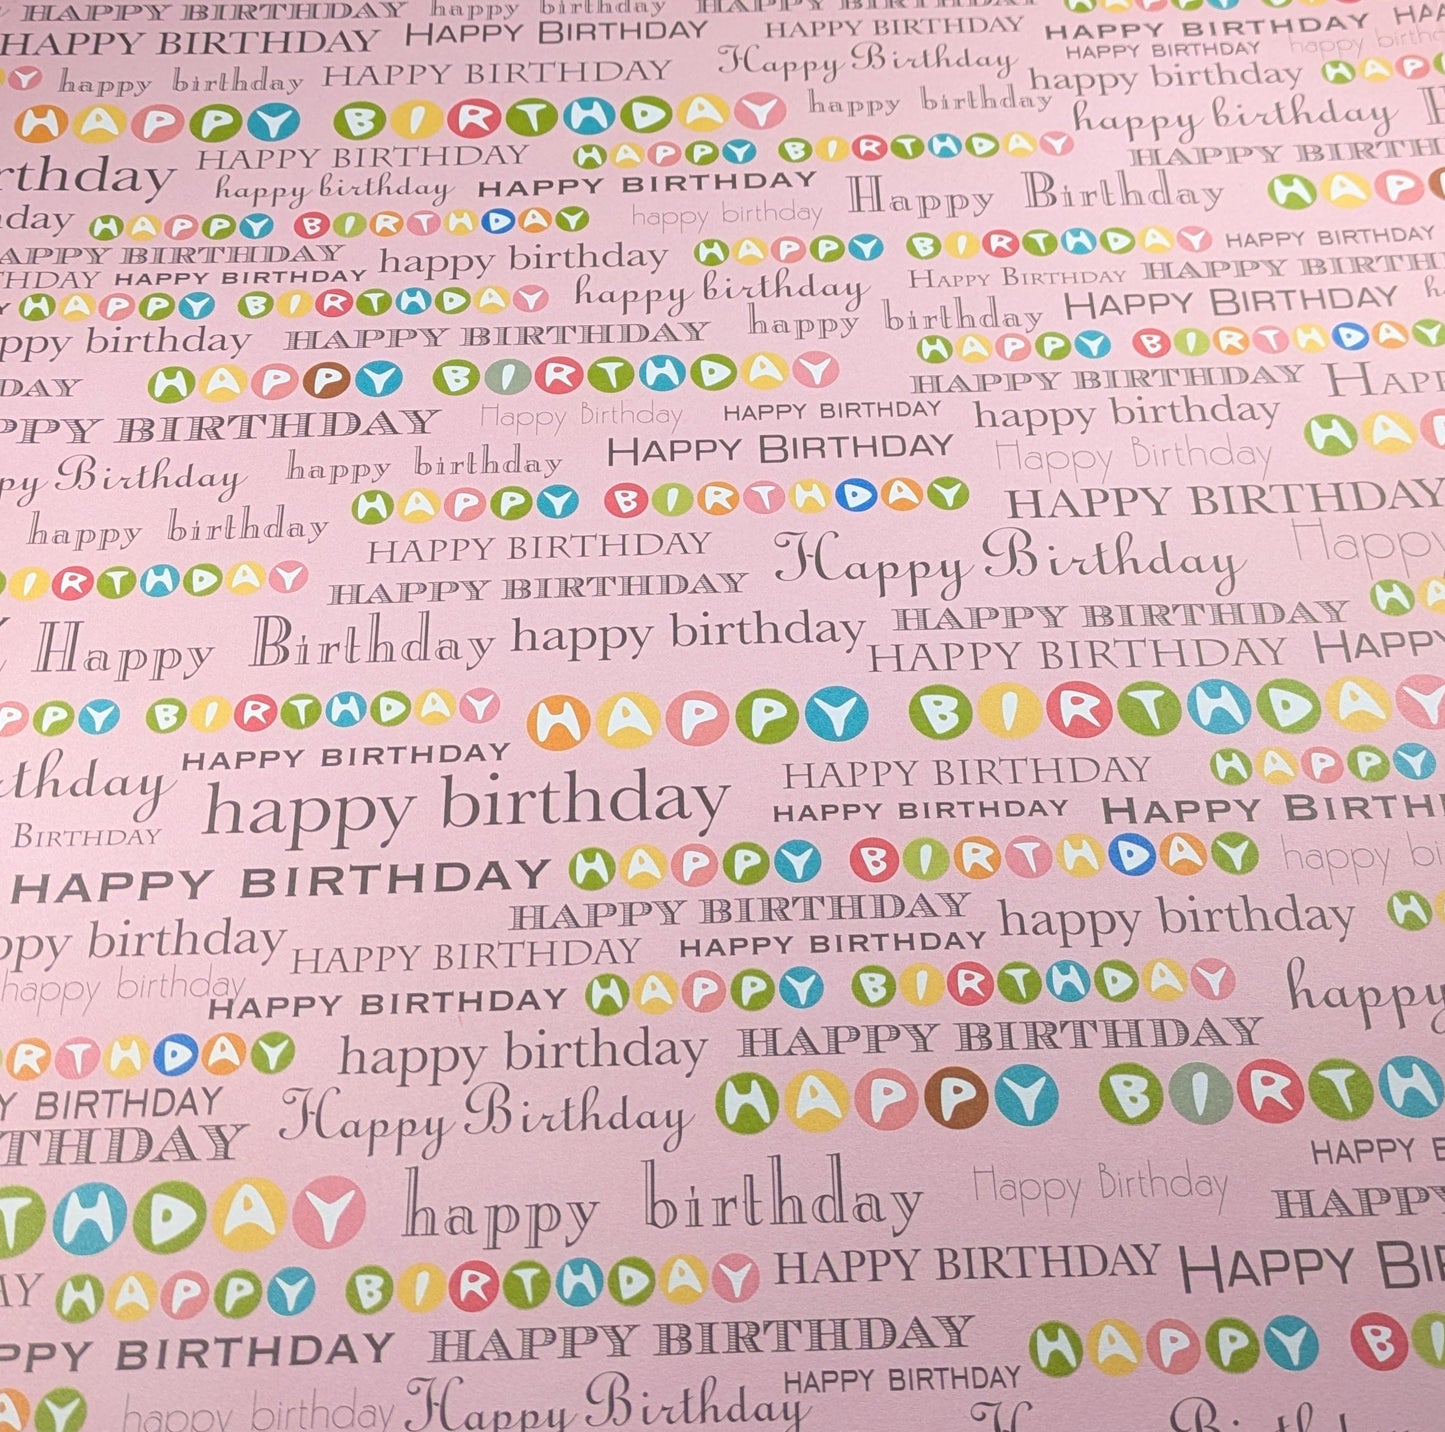 HAPPY BIRTHDAY happy birthday HAPPY BIRTHDAY
HAPPY BIRTHDAY HAPPY BIRTHDAY HAPPY BIRTHDAY HAPPY BIRTHDAY HAPPY BIRTHDAY
Y happy birthday HAPPY BIRTHDAY Happy Birthday happy birthday HAP
HAPPY BIRTHDAY happy birthday happy birthday
rthday HAPPY BIRTHDAY HAPPY BIRTHDAY HAPPY BIRTH
happy birthday HAPPY BIRTHDAY Happy Birthday HAP
day HAPPY BIRTHDAY happy birthday
APPY BIRTHDAY happy birthday HAPPY BIRTHDAY HAPPY BIRTHDAY
THDAY HAPPY BIRTHDAY Happy Birthday HAPPY BIRTH
Y HAPPY BIRTHDAY happy birthday happy birthday HAPPY BIRTHDAY
ppy birthday HAPPY BIRTHDAY HAPPY BIRTHDAY
DAY HAPPY BIRTHDAY HAPPY BIRTHDAY HAPP
PPY BIRTHDAY Happy Birthday HAPPY BIRTHDAY happy birthday HA
py Birthday happy birthday HAPPY BIRTHDAY Happy Birthday
happy birthday HAPPY BIRTHDAY HAPPY BIRTHDAY
HAPPY BIRTHDAY Happy Birthday Happy
IRTHDAY HAPPY BIRTHDAY HA
Happy Birthday happy birthday HAPPY BIRTHDAY
HAPPY BIRTHDAY HAPPY
PPY BIRTHDAY HAPPY BIRTHDAY
rthday HAPPY BIRTHDAY HAPPY BIRTHDAY HAPPY
BIRTHDAY happy birthday HAPPY BIRTHDAY HAPPY BIRTH
HAPPY BIRTHDAY HAPPY BIRTHDAY happy bi
ppy birthday HAPPY BIRTHDAY happy birthday H
HAPPY BIRTHDAY HAPPY BIRTHDAY
happy birthday HAPPY BIRTHDAY HAPPY BIRTHDAY happy
RTHDAY happy birthday HAPPY BIRTHDAY
Y BIRTHDAY Happy Birthday HAPPY BIRTH
THDAY HAPPY B
THDAY happy birthday Happy Birthday HAPPY
AY HAPPY BIRTHDAY HAPPY BIRTHDAY HAPPY BI
PPY BIRTHDAY HAPPY BIRTHDAY HAPPY BI
AY happy birthday Happy Birthday HAPPY BIRTHDAY